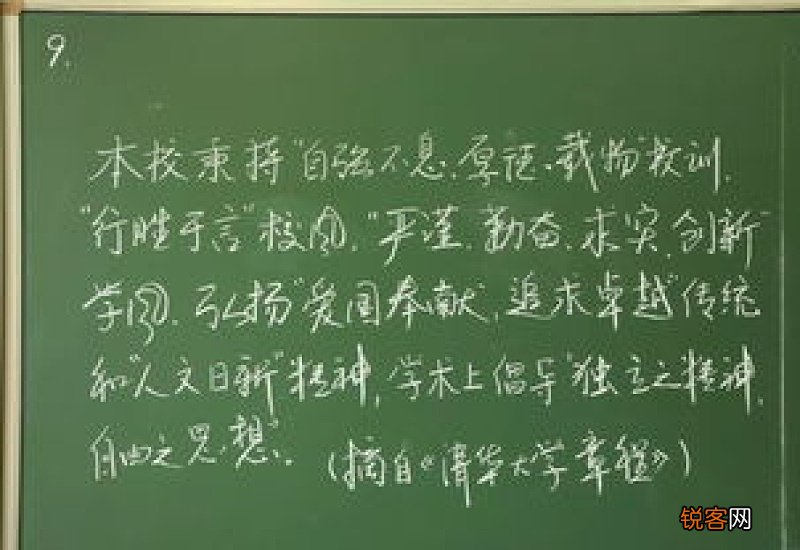 9.
本校秉持"自强不息,厚德载物"校训,
"行胜于言"校风,"严谨、勤奋、求实、创新"
学风,弘扬"爱国奉献,追求卓越"传统
和"人文日新"精神,学术上倡导"独立之精神,
自由之思想"。(摘自《清华大学章程》)
锐客网